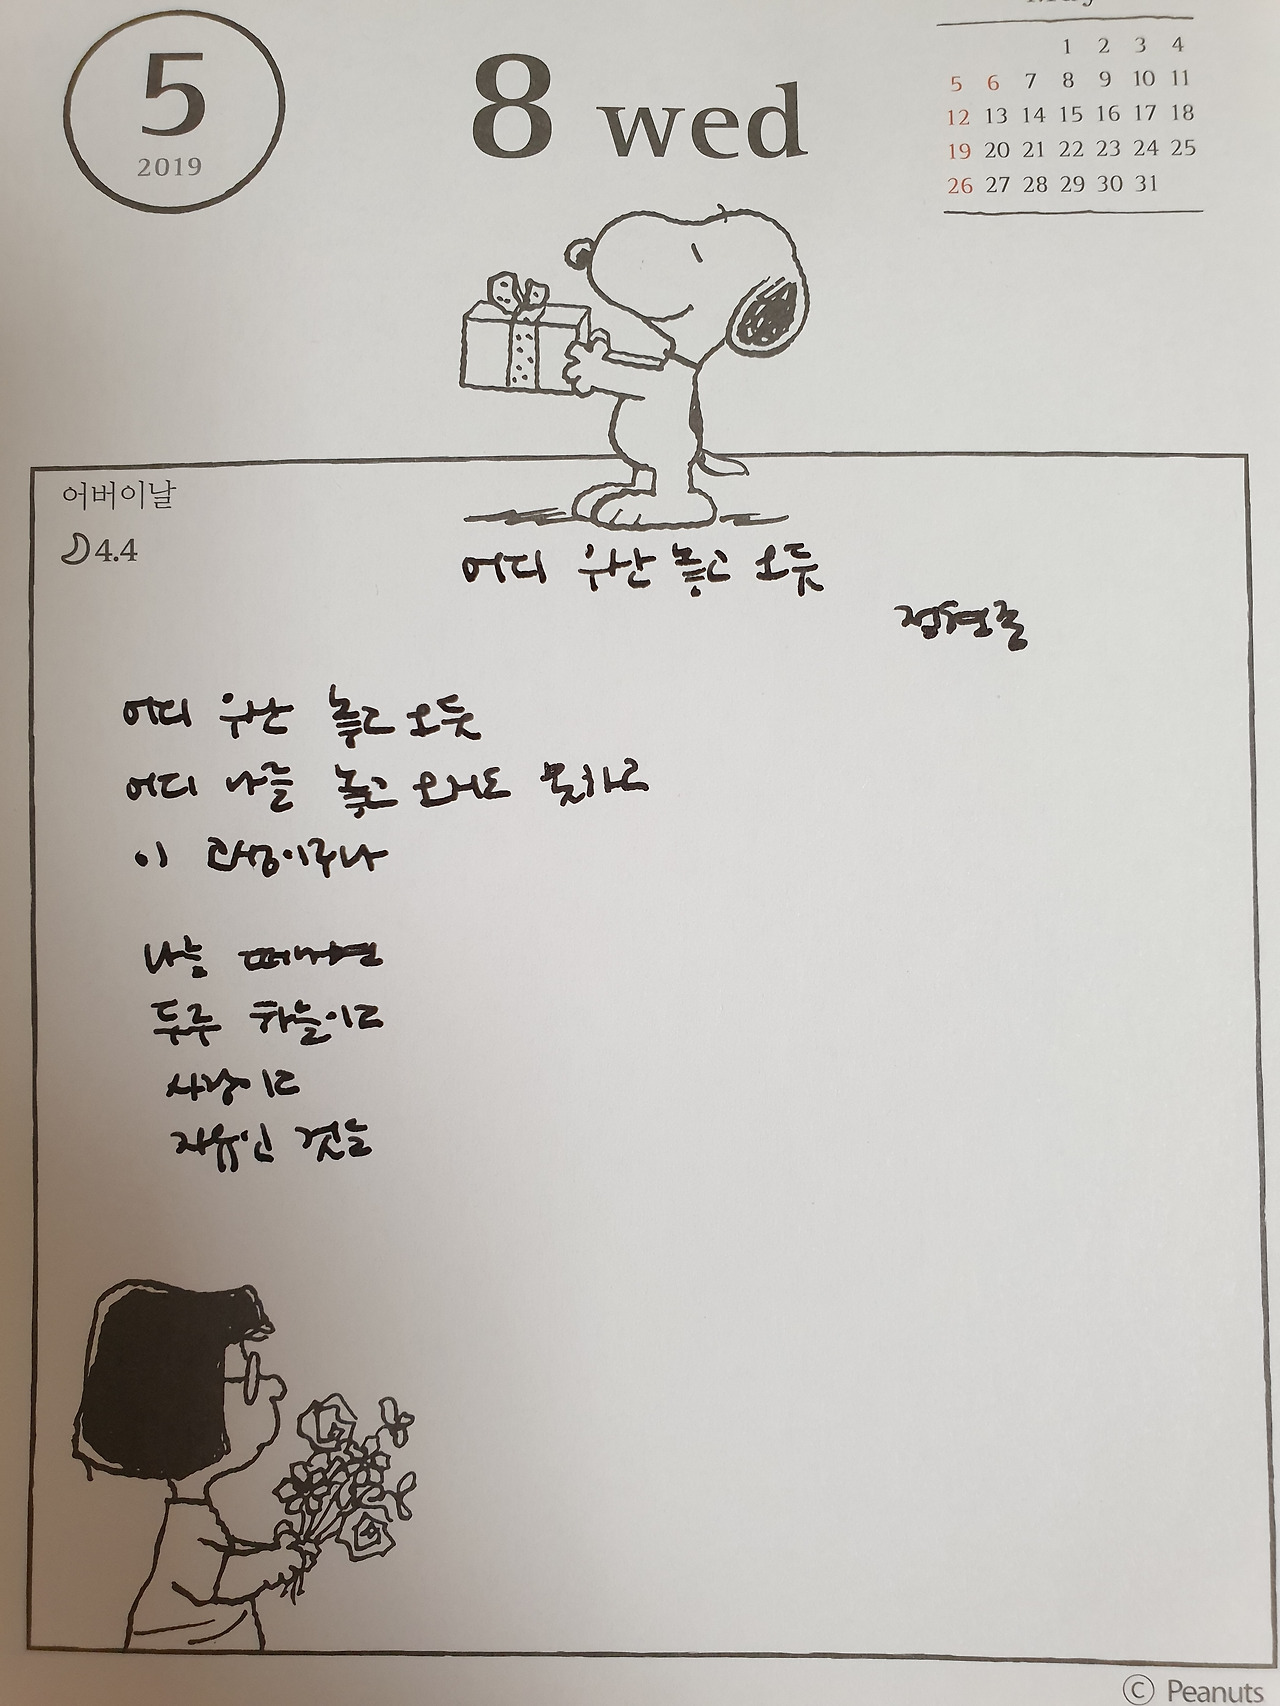 5
2019
8 wed
1 2 3 4
5 6 7 8 9 10 11
12 13 14 15 16 17 18
19 20 21 22 23 24 25
26 27 28 29 30 31
어버이날
4.4
어디 우산 놓고 오듯
정현종
어디 우산 놓고 오듯
어디 나를 놓고 오지도 못하고
이 고생이구나
나를 떠나면
두루 하늘이고
사랑이고
자유인 것을
© Peanuts